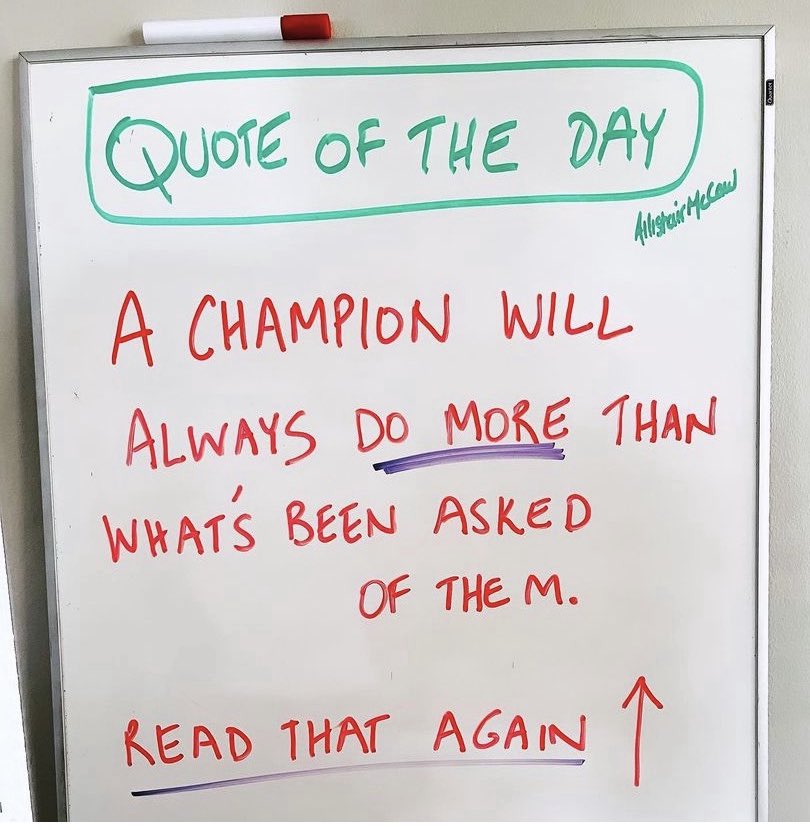 QUOTE OF THE DAY
Allistair McCaw
A CHAMPION WILL
ALWAYS DO MORE THAN
WHAT'S BEEN ASKED
OF THEM.
READ THAT AGAIN ↑